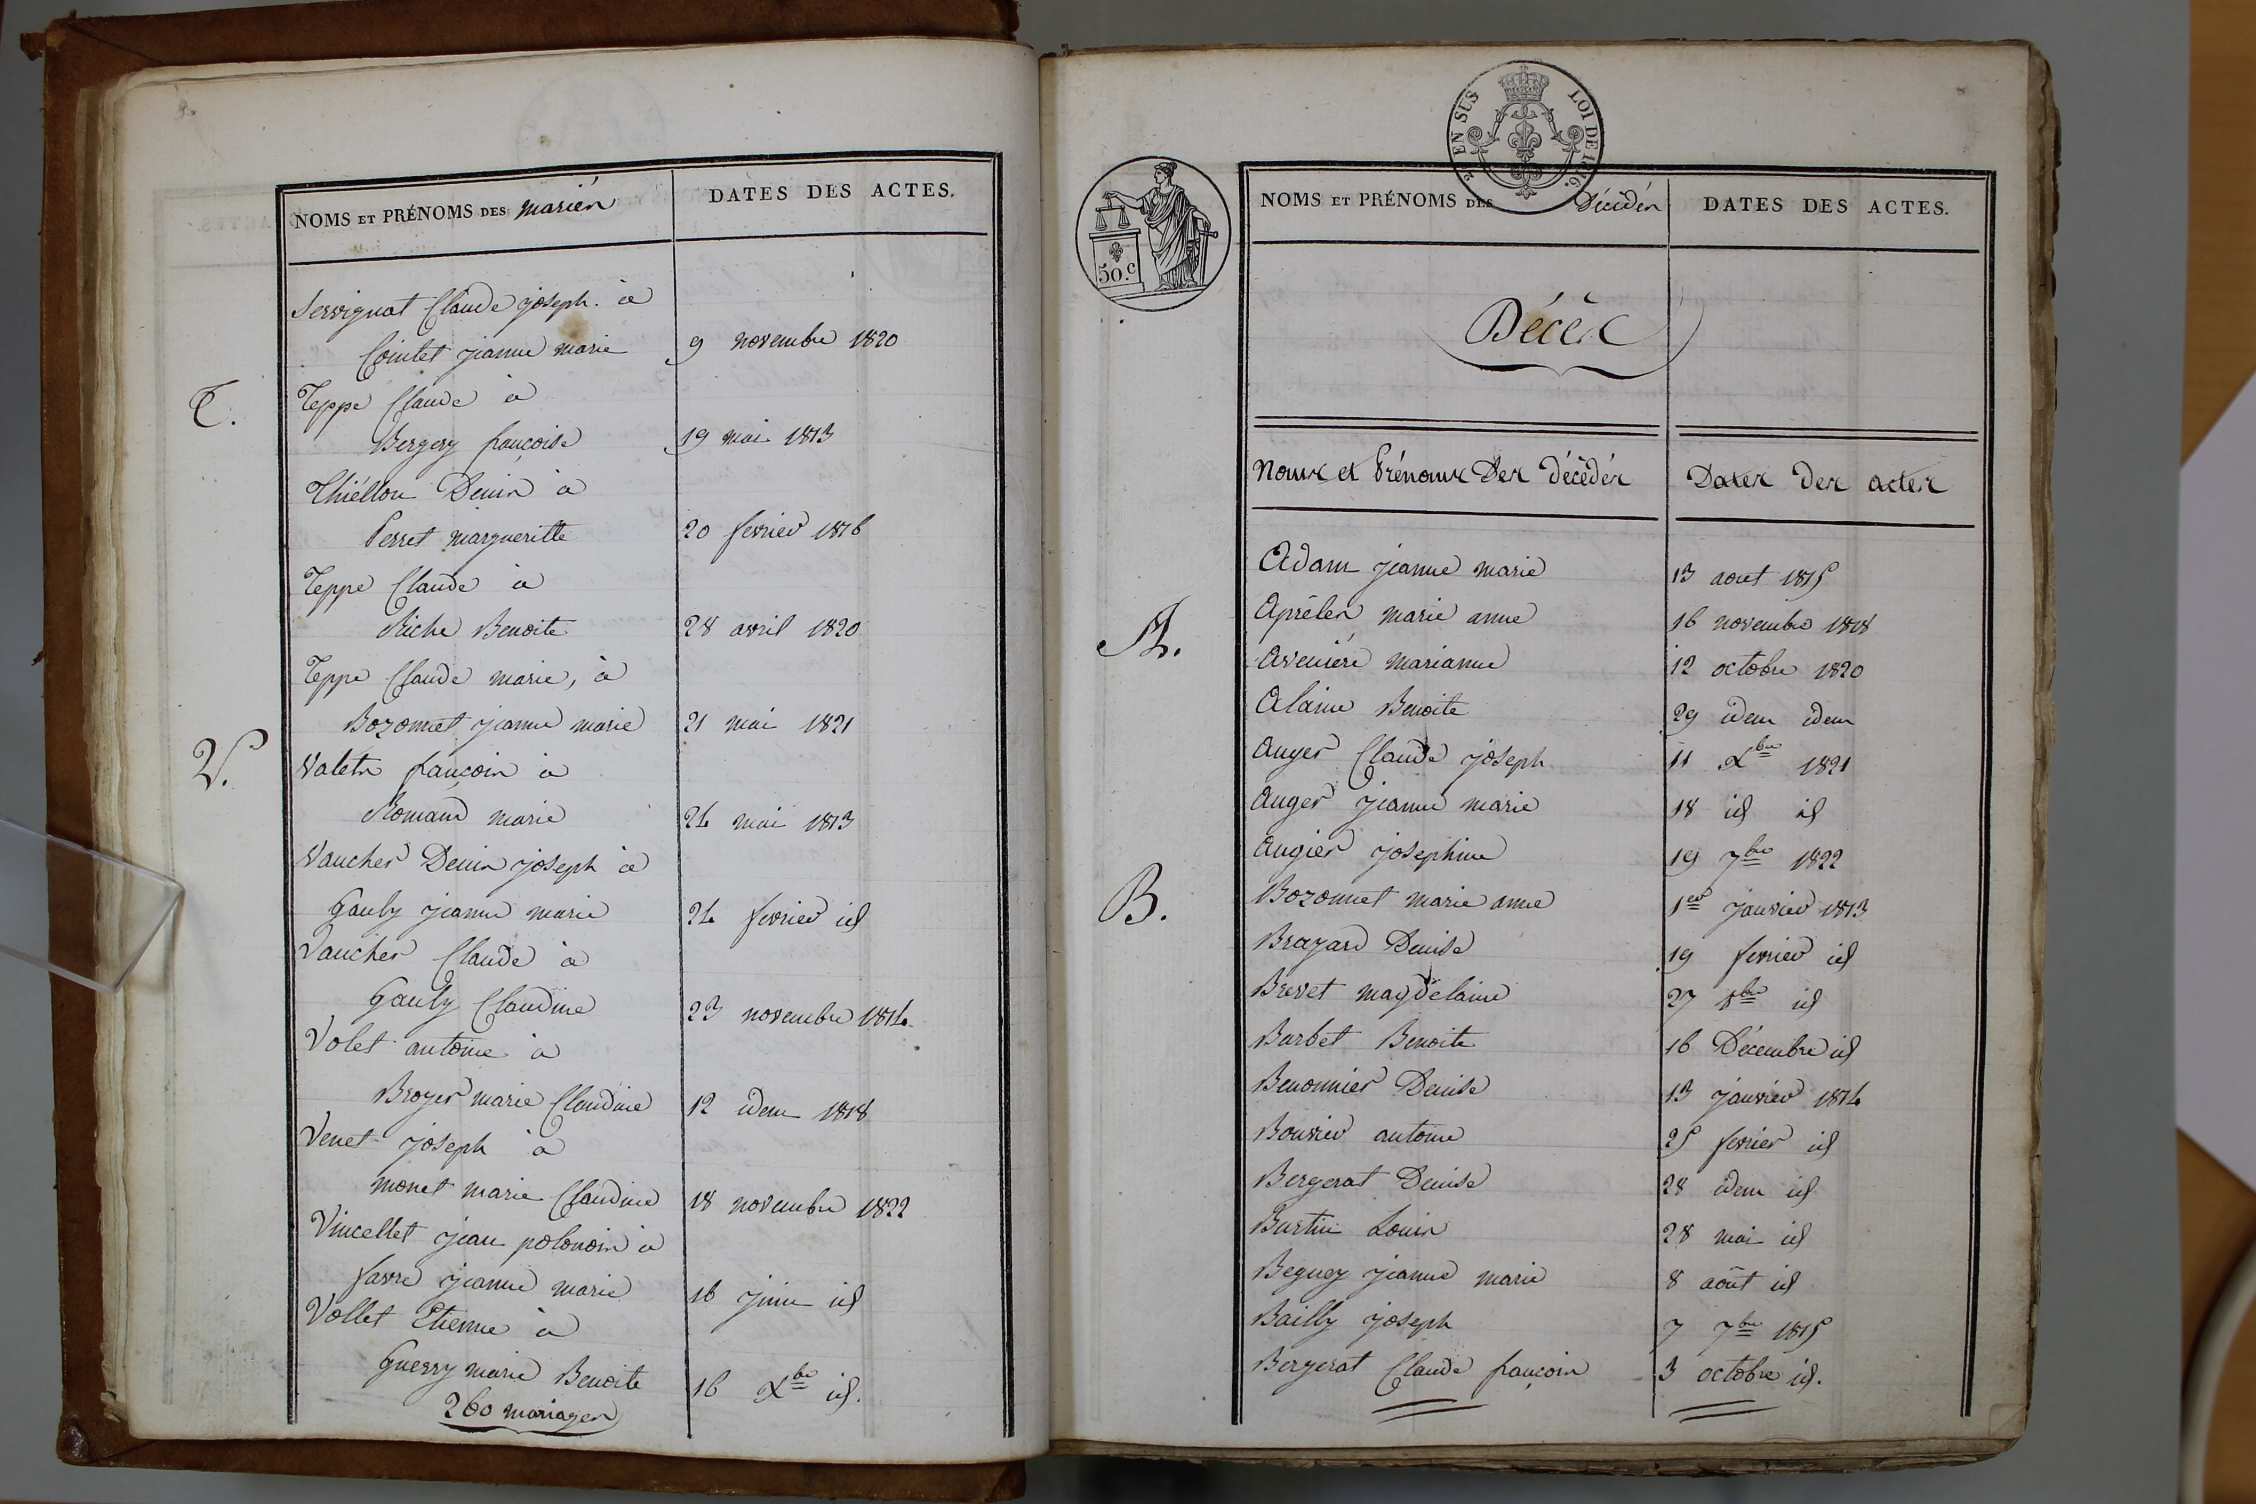 NOMS ET PRÉNOMS DES mariés
DATES DES ACTES.
Servignat Claude joseph. à
Cointet jeanne marie 9 novembre 1820
T.
Teppe Claude à
Bergery françoise 19 mai 1813
Thiéllon Denis à
Perret margueritte 20 fevrier 1816
Teppe Claude à
Riche Benoite 28 avril 1820
Teppe Claude marie, à
Bozonnet jeanne marie 21 mai 1821
V.
Valetn françois à
Romand marie 24 mai 1813
Vaucher Denis joseph à
Gauly jeanne marie 24 fevrier id
Vaucher Claude à
Gauly Claudine 23 novembre 1814
Volet antoine à
Broyer marie Claudine 12 idem 1818
Venet joseph à
monet marie Claudine 18 novembre 1822
Vincellet jean polonois à
favre jeanne marie 16 juin id
Vollet Etienne à
Guerry marie Benoite 16 Xbre id.
260 mariages
EN SUS LOI DE 1816.
50.c
NOMS ET PRÉNOMS DES Décédés
DATES DES ACTES.
Décès
Noms et Prénoms Des décèdés Dates des actes
A.
Adam jeanne marie 13 aout 1815
Aprêles marie anne 16 novembre 1818
Aveniére marianne 12 octobre 1820
Alaine Benoite 29 idem idem
Auger Claude joseph 11 Xbre 1821
Auger jeanne marie 18 id id
Augier josephine 19 7bre 1822
B.
Bozonnet marie anne 1er janvier 1813
Brazard Denise 19 fevrier id
Brevet magdelaine 27 8bre id
Barbet Benoite 16 Décembre id
Benonnier Denise 13 janvier 1814
Bouvier antoine 25 fevrier id
Bergerat Denise 28 idem id
Burtin Louis 28 mai id
Beguey jeanne marie 8 août id
Bailly joseph 7 7bre 1815
Bergerat Claude françois 3 octobre id.